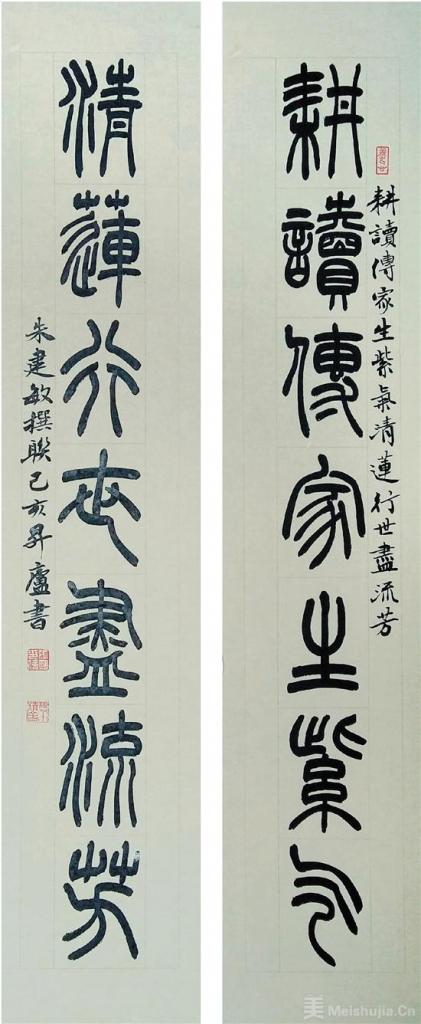 耕讀傳家生紫气
耕讀傳家生紫氣清蓮行世盡流芳
清蓮行世盡流芳
朱建敏撰聯己亥昇廬書
美 Meishujia.Cn